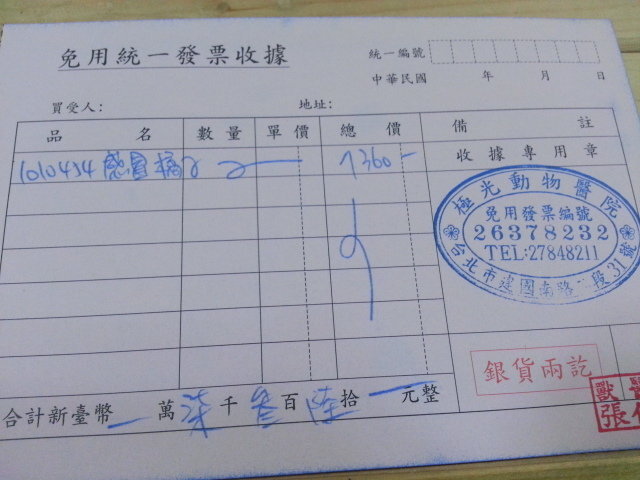 免用統一發票收據
統一編號
中華民國 年 月 日
買受人: 地址:
品名 數量 單價 總價 備註
收據專用章
1010434 7360-
極光動物醫院
免用發票編號
26378232
TEL:27848211
台北市建國南路二段31號
銀貨兩訖
獸醫
張
合計新臺幣 萬柒千叁百陸拾 元整